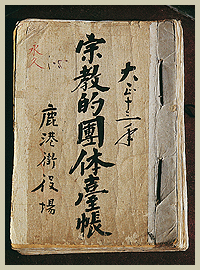 大正十三年
宗教的團体臺帳
鹿港街役場
永久